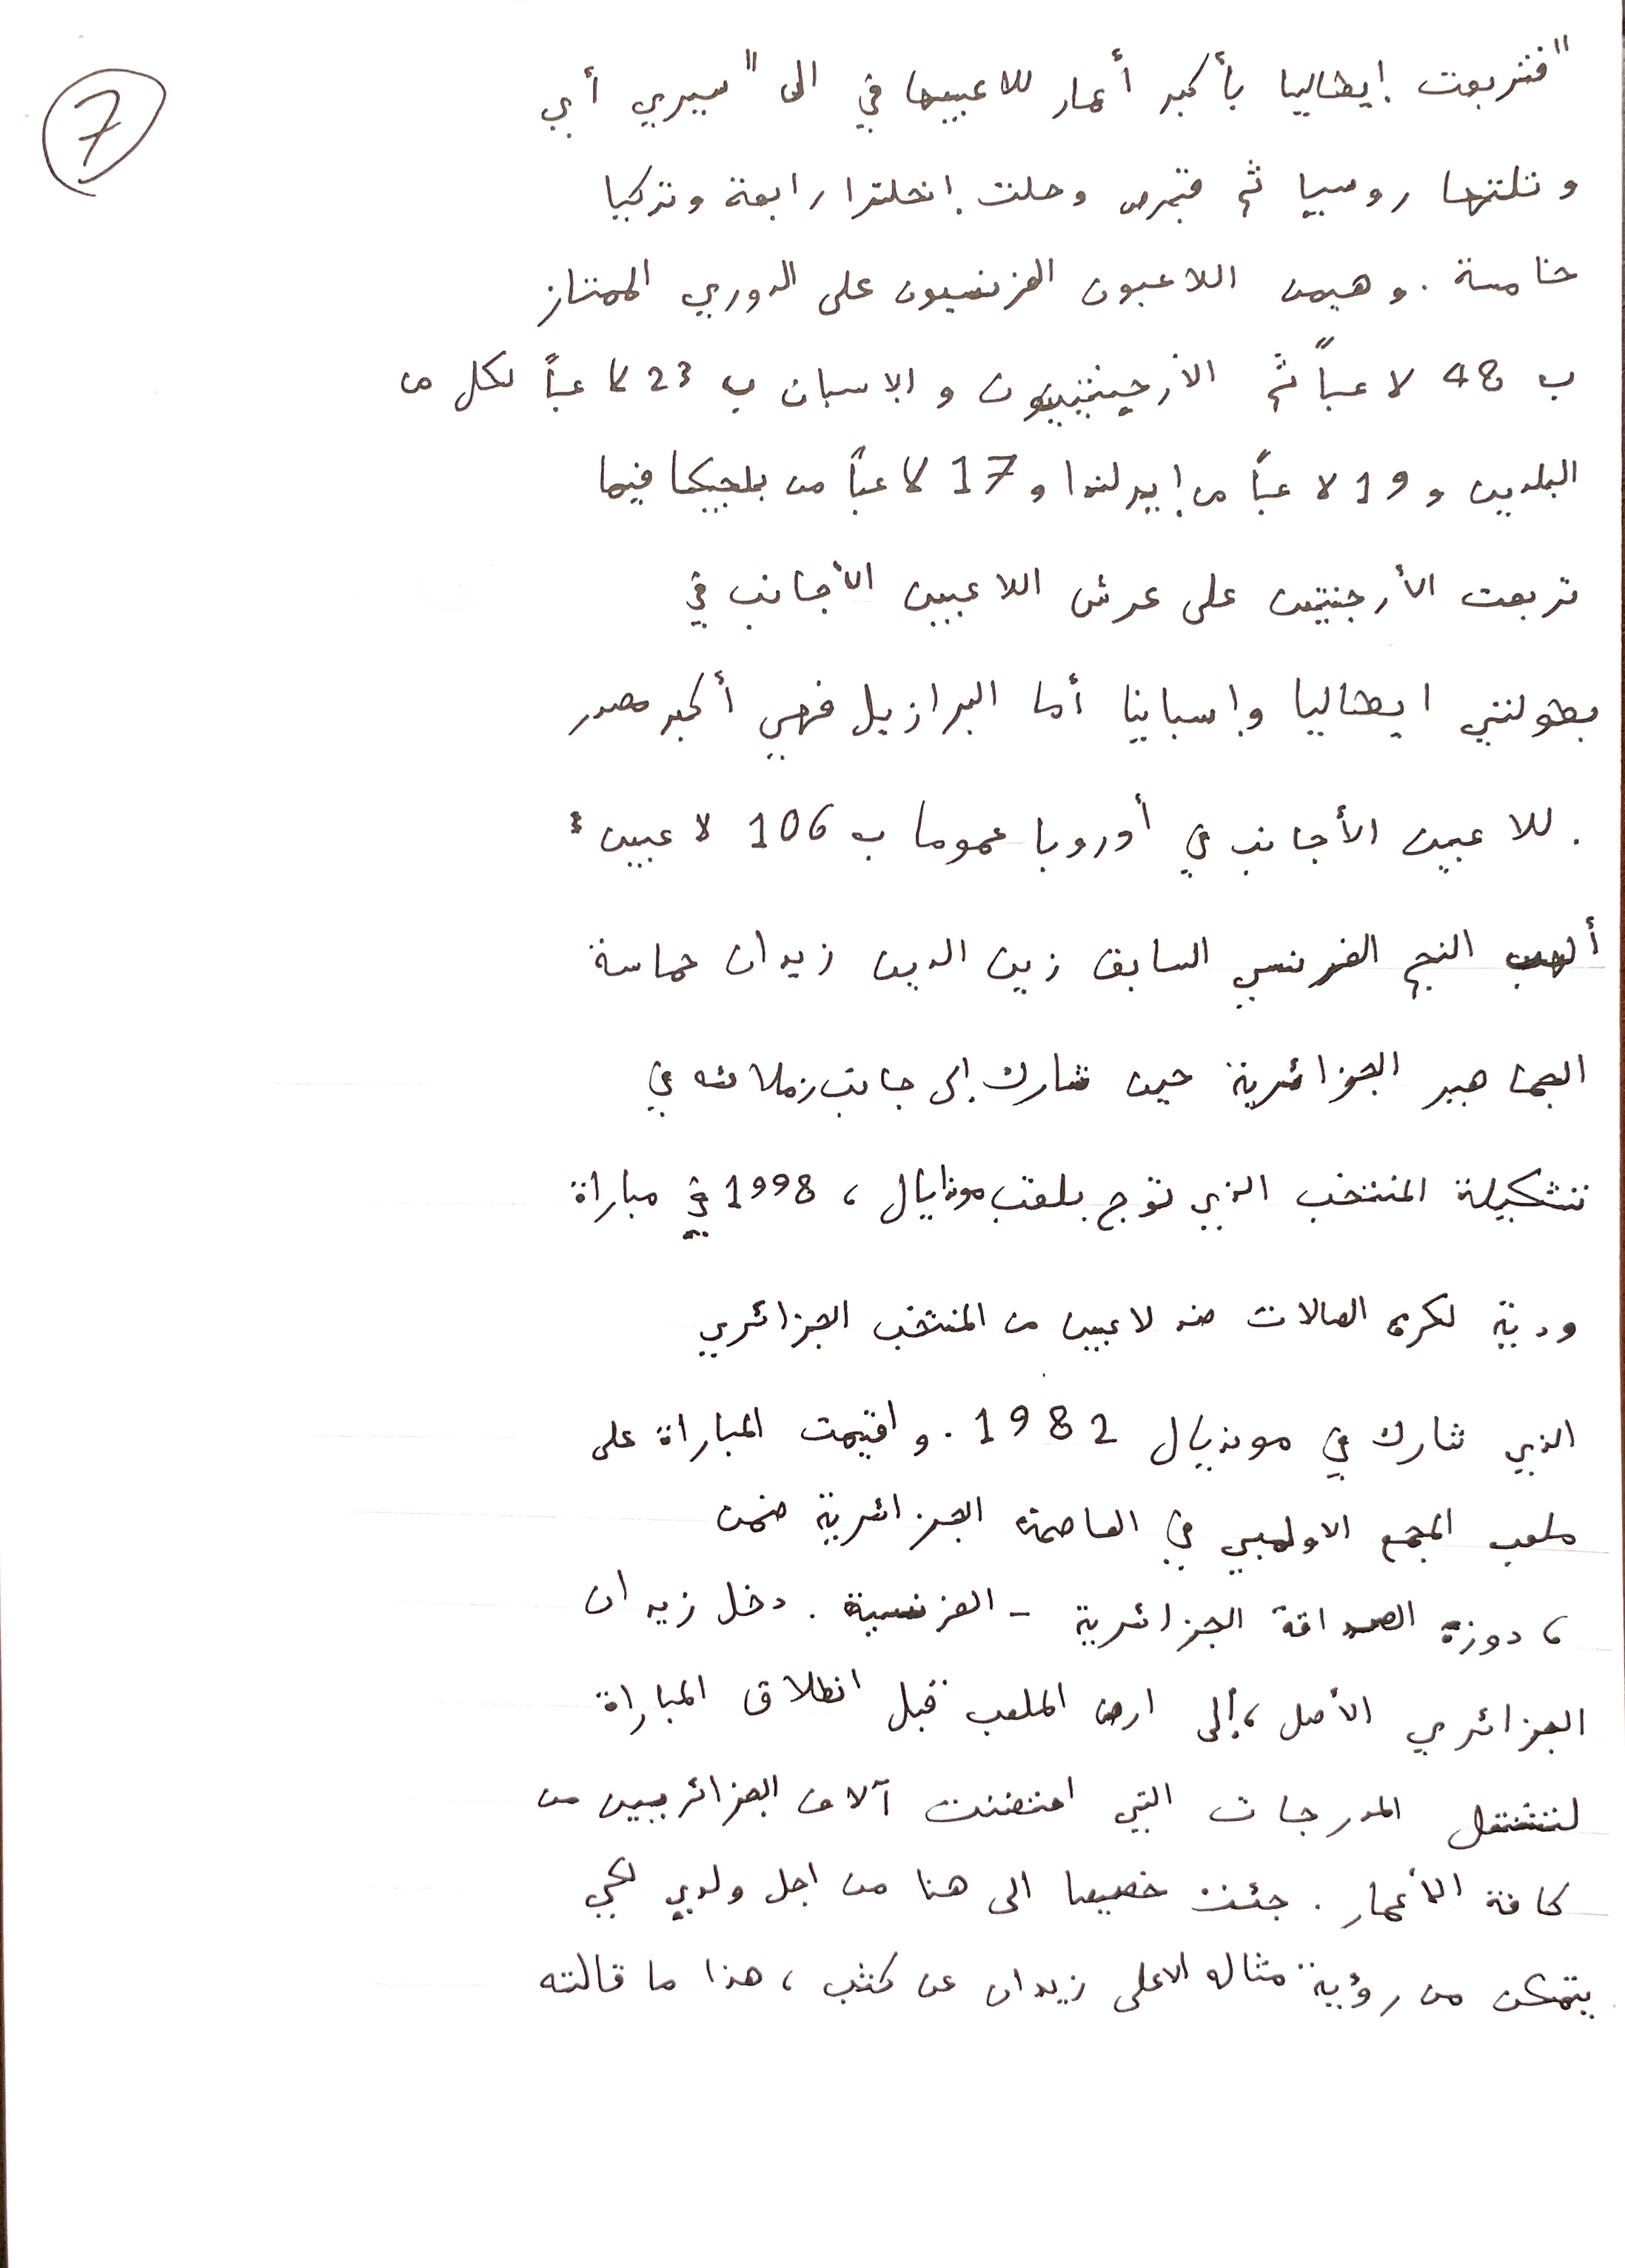 7
"فتربعت إيطاليا بأكبر أعمار للاعبيها في ال" سيري أي
وتلتها روسيا ثم قبرص وحلت إنجلترا رابعة وتركيا
خامسة . وهيمن اللاعبون الفرنسيون على الدوري الممتاز
ب 48 لاعباً ثم الأرجينتيون والاسبان ب 23 لاعباً لكل من
البلدين و 19 لاعباً من إيرلندا و 17 لاعباً من بلجيكا فيما
تربعت الأرجنيتن على عرش اللاعبين الأجانب في
بطولتي ايطاليا وإسبانيا أما البرازيل فهي أكبر مصدر
. للاعبين الأجانب في أوروبا عموما ب 106 لاعبين
ألهب النجم الفرنسي السابق زين الدين زيدان حماسة
الجماهير الجزائرية حين شارك إلى جانب زملائه في
تشكيلة المنتخب الذي توج بلقب مونديال ، 1998 في مباراة
ودية لكرة الصالات ضد لاعبين من المنتخب الجزائري
الذي شارك في مونديال 1982 . واقيمت المباراة على
ملعب المجمع الاولمبي في العاصمة الجزائرية ضمن
، دورة الصداقة الجزائرية - الفرنسية . دخل زيدان
الجزائري الأصل ، إلى ارض الملعب قبل انطلاق المباراة
لتشتعل المدرجات التي احتضنت آلاف الجزائريين من
كافة الأعمار . جئت خصيصا الى هنا من اجل ولدي لكي
يتمكن من رؤية مثاله الاعلى زيدان عن كثب ، هذا ما قالته